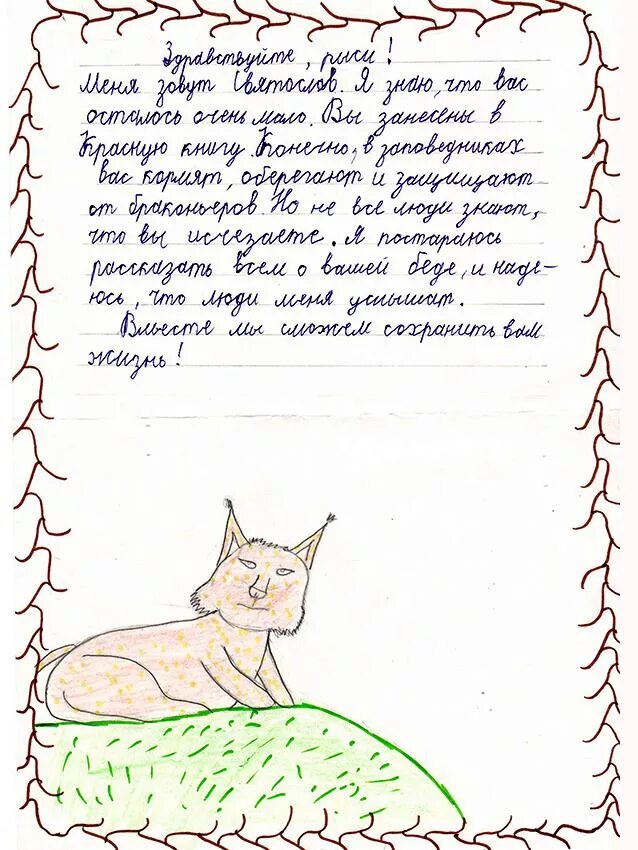 Здравствуйте, рыси!
Меня зовут Святослав. Я знаю, что вас
осталось очень мало. Вы занесены в
Красную книгу. Конечно, в заповедниках
вас кормят, оберегают и защищают
от браконьеров. Но не все люди знают,
что вы исчезаете. Я постараюсь
рассказать всем о вашей беде, и наде-
юсь, что люди меня услышат.
Вместе мы сможем сохранить вам
жизнь!